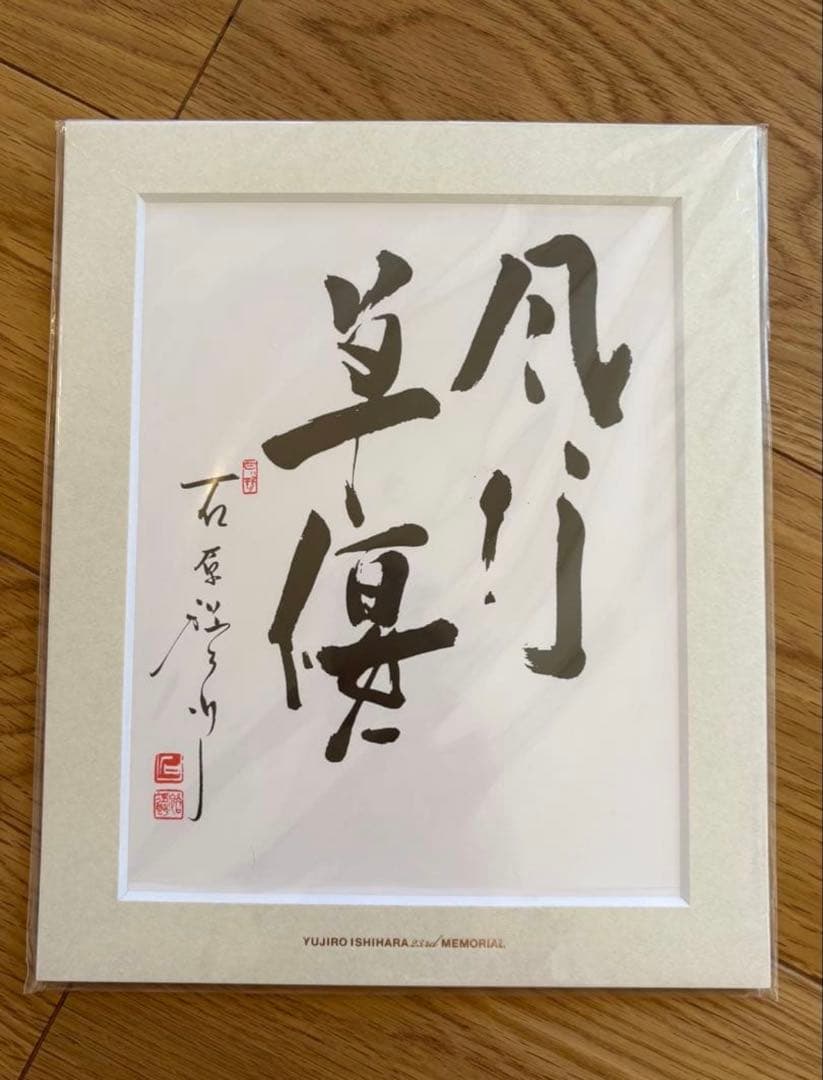 風行
草偃
石原裕次郎
YUJIRO ISHIHARA 23rd MEMORIAL